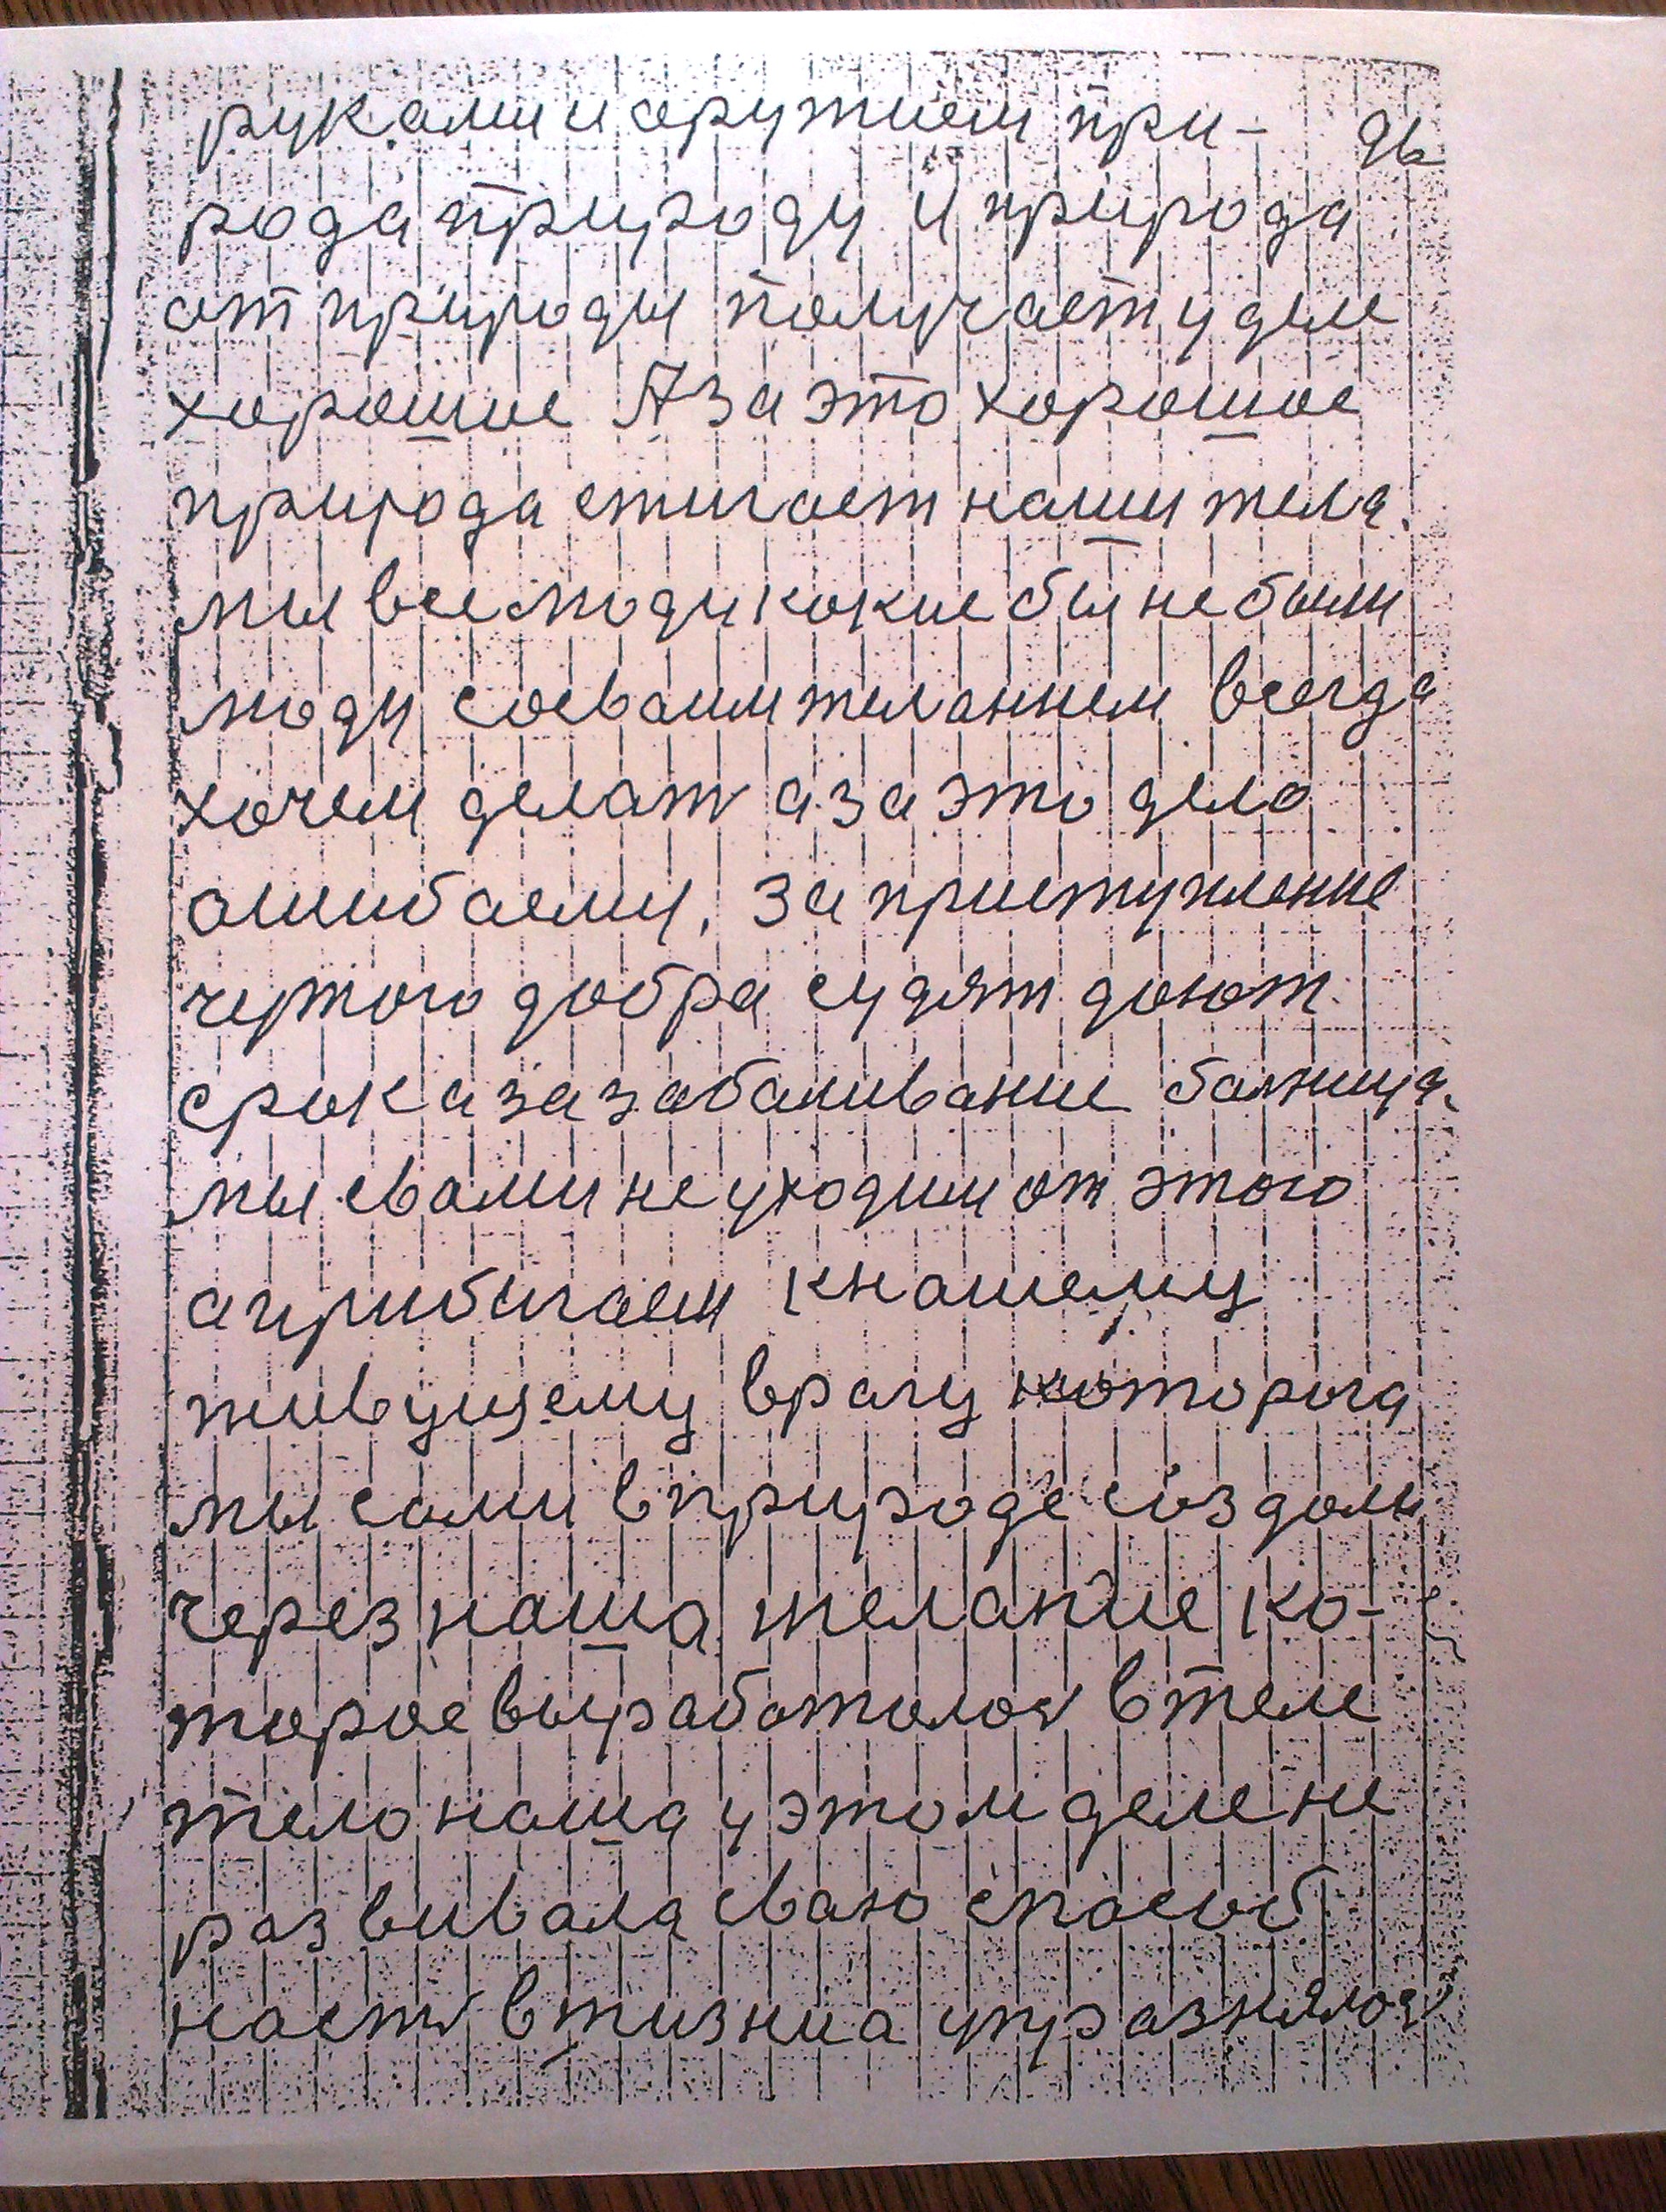 руками и аружием при-
рода природу и природа
от природы получает у деле
хорошие А за это хорошое
природа стигает наши тела.
мы все люди кокие бы не были
люди соеваим желанием всегда
хочем делат а за это дело
ошибаемц, за приступление
чужого добра судят дают
срок а за забаливание балница.
мы свами не уходим от этого
а прибигаем к нашему
живущему врагу которыга
мы сами в природе создали
через наша желание ко-
торое выработолось в теле
тело наша у этом деле не
развивала сваю способ
насть в жизни а упразнялось